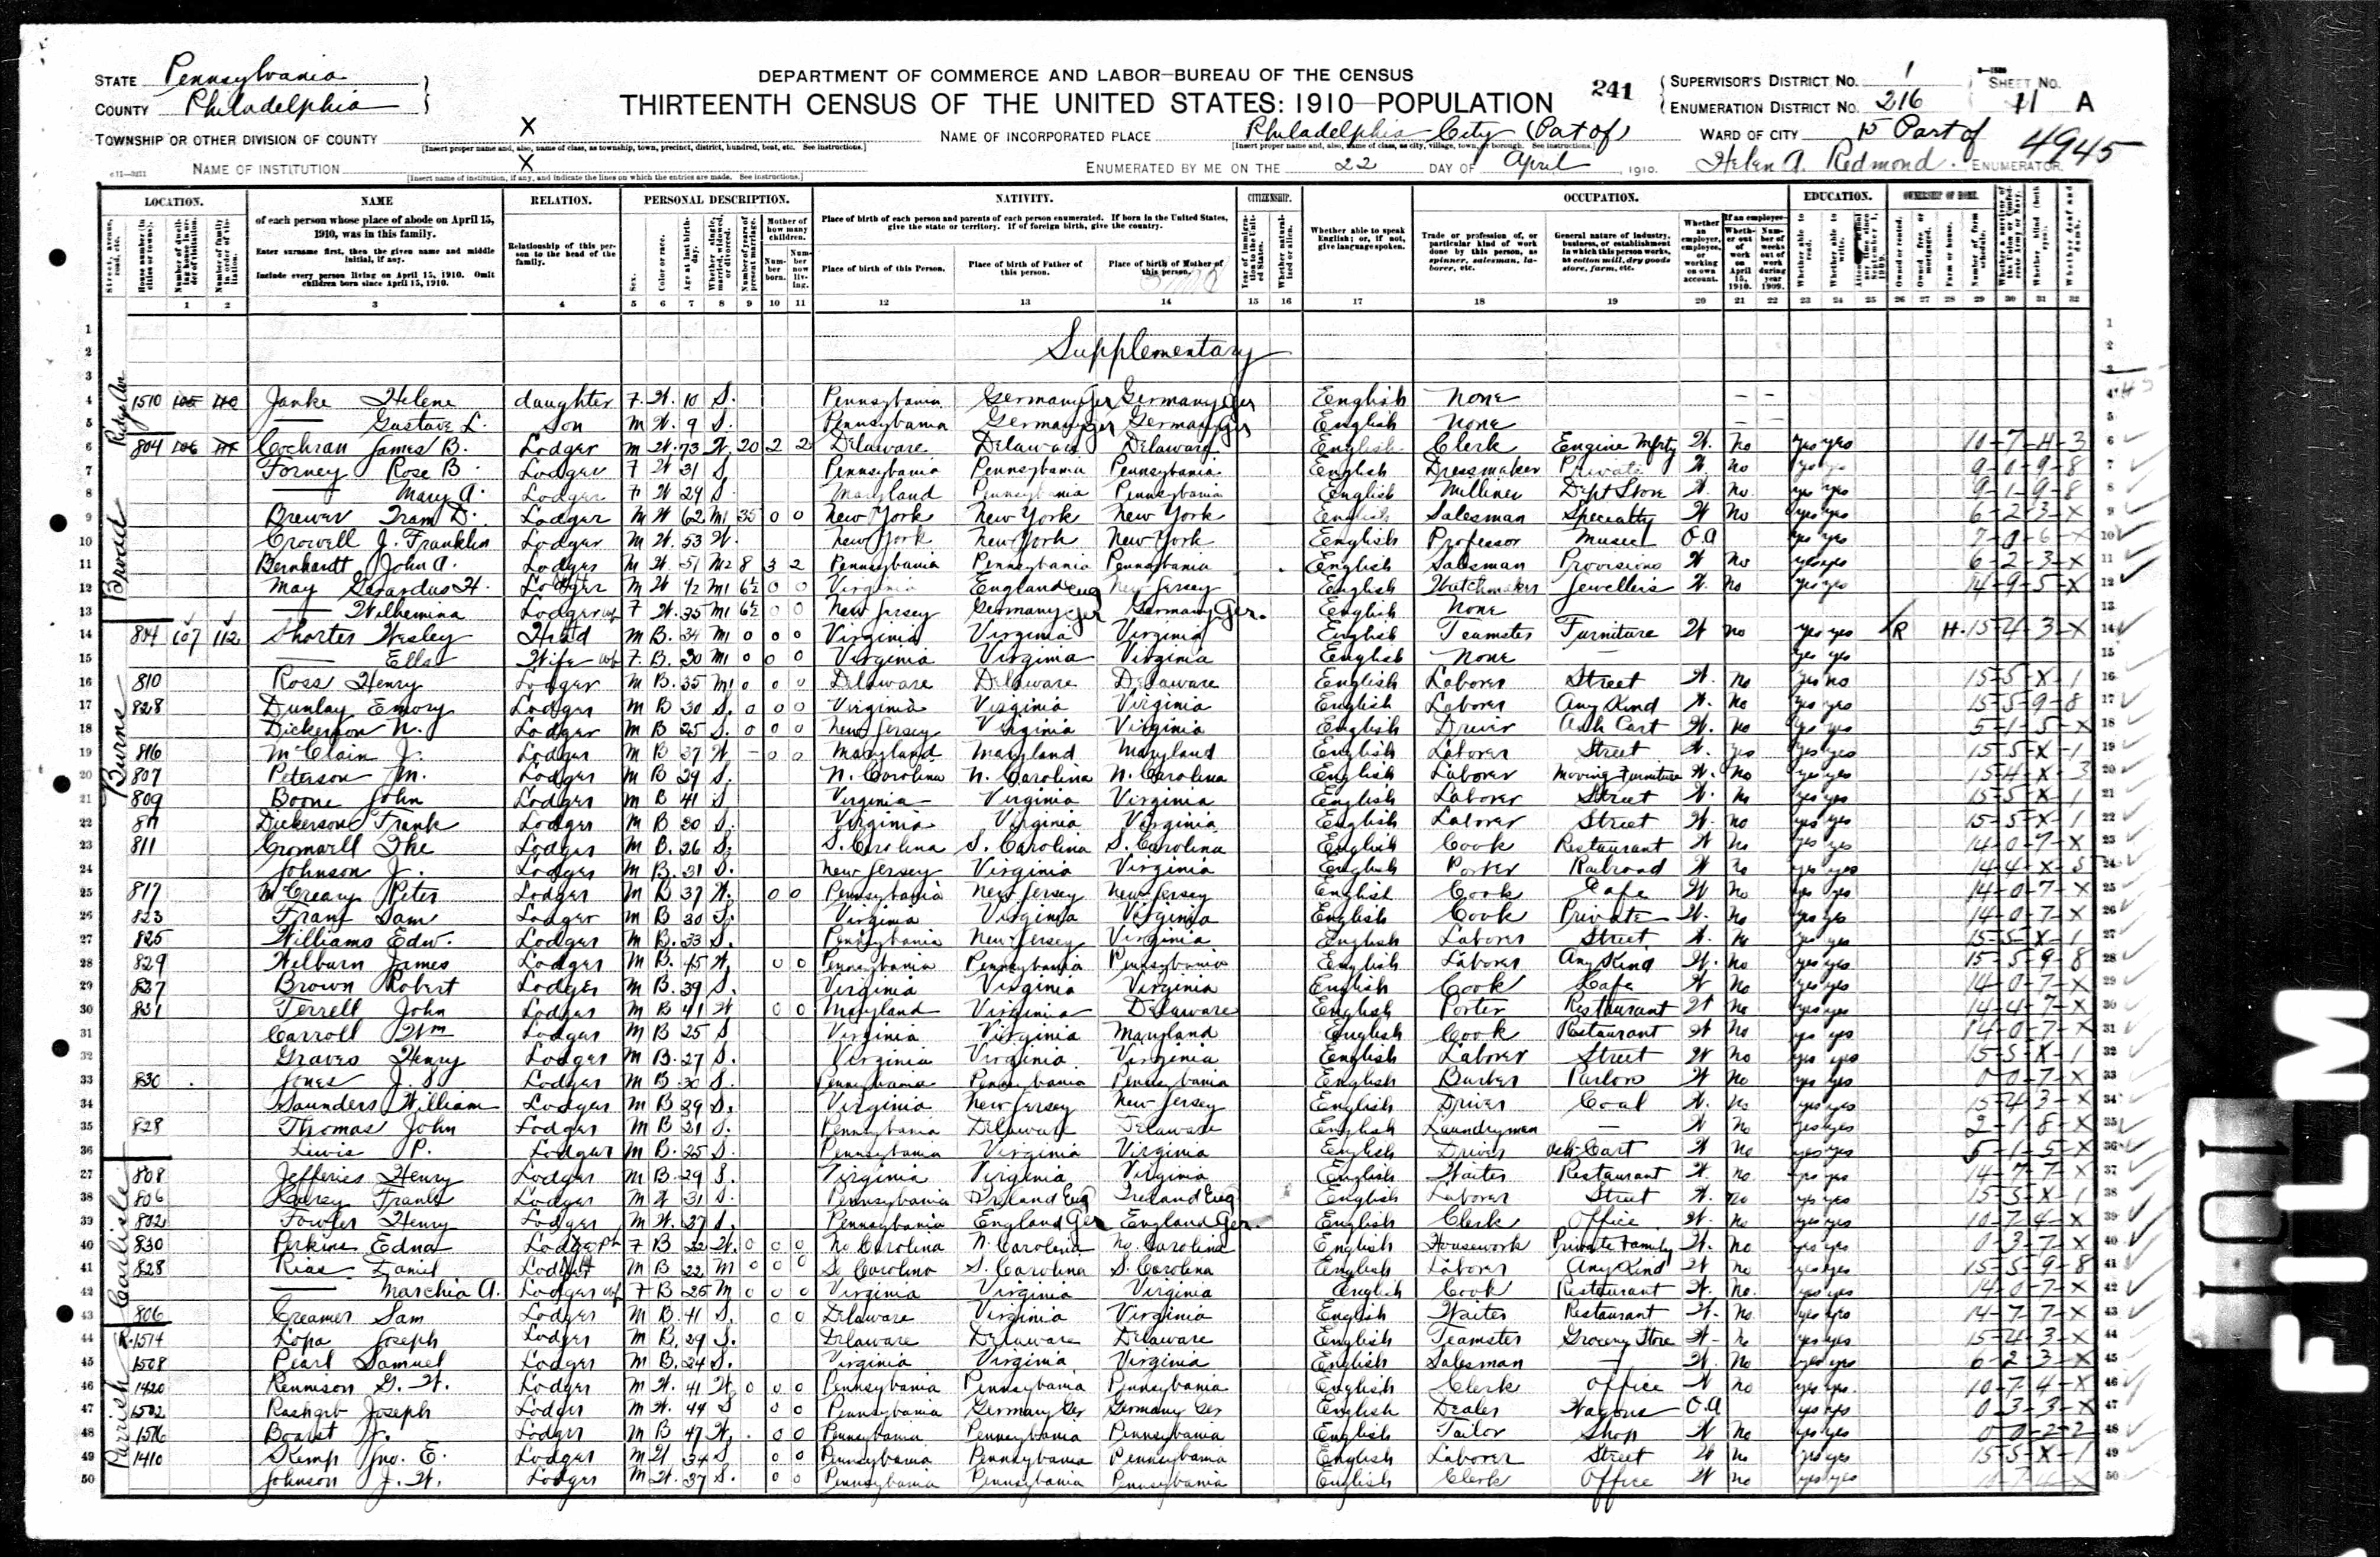 STATE Pennsylvania
COUNTY Philadelphia
DEPARTMENT OF COMMERCE AND LABOR—BUREAU OF THE CENSUS
THIRTEENTH CENSUS OF THE UNITED STATES: 1910—POPULATION
241
SUPERVISOR'S DISTRICT NO. 1
ENUMERATION DISTRICT NO. 216
SHEET NO. 11 A
TOWNSHIP OR OTHER DIVISION OF COUNTY X
NAME OF INCORPORATED PLACE Philadelphia City (Part of)
WARD OF CITY 15 Part of
4945
NAME OF INSTITUTION X
ENUMERATED BY ME ON THE 22 DAY OF April, 1910. Helen A. Redmond. ENUMERATOR.
LOCATION. NAME RELATION. PERSONAL DESCRIPTION. NATIVITY. CITIZENSHIP. OCCUPATION. EDUCATION. OWNERSHIP OF HOME.
of each person whose place of abode on April 15, 1910, was in this family.
Enter surname first, then the given name and middle initial, if any.
Include every person living on April 15, 1910. Omit children born since April 15, 1910.
Relationship of this person to the head of the family.
Place of birth of each person and parents of each person enumerated. If born in the United States, give the state or territory. If of foreign birth, give the country.
Place of birth of this Person. Place of birth of Father of this person. Place of birth of Mother of this person.
Whether able to speak English; or, if not, give language spoken.
Trade or profession of, or particular kind of work done by this person, as spinner, salesman, laborer, etc.
General nature of industry, business, or establishment in which this person works, as cotton mill, dry goods store, farm, etc.
1 2 3 4 5 6 7 8 9 10 11 12 13 14 15 16 17 18 19 20 21 22 23 24 25 26 27 28 29 30 31 32
Supplementary
4 1510 Janke Helene daughter F W. 10 S. Pennsylvania Germany Ger Germany Ger English None
5 Gustave L. Son M W. 9 S. Pennsylvania Germany Ger Germany Ger English None
6 804 Cochran James B. Lodger M W. 73 W. 20 2 2 Delaware Delaware Delaware English Clerk Engine Mfrty W. No yes yes 10-7-4-3
7 Forney Rose B. Lodger F W 31 S Pennsylvania Pennsylvania Pennsylvania English Dressmaker Private W No 9-0-9-8
8 Mary A. Lodger F W 29 S Maryland Pennsylvania Pennsylvania English Milliner Dept Store W. No. yes yes 9-1-9-8
9 Brewer Lodger M W 62 M1 35 0 0 New York New York New York English Salesman Specialty W No yes yes 6-2-3-X
10 Crowell J. Franklin Lodger M W. 53 W. New York New York New York English Professor Music O.A yes yes
11 Bernhardt John A. Lodger M W. 51 M2 8 3 2 Pennsylvania Pennsylvania Pennsylvania English Salesman Provisions W No yes yes 6-2-3-X
12 May Gerardus H. Lodger M W 42 M1 6½ 0 0 Virginia England Eng New Jersey English Watchmaker Jewellers W. No yes yes 14-9-5-X
13 Wilhemina Lodger wf F W. 35 M1 6½ 0 0 New Jersey Germany Ger Germany Ger. English None
14 804 107 112 Shorter Wesley Head M B. 34 M1 0 0 0 Virginia Virginia Virginia English Teamster Furniture W no yes yes R H. 15-4-3-X
15 Ella Wife wf F. B. 30 M1 0 0 0 Virginia Virginia Virginia English None yes yes
16 810 Ross Henry Lodger M B. 35 M1 0 0 0 Delaware Delaware Delaware English Laborer Street W. No yes no 15-5-X-1
17 828 Dunlay Emory Lodger M B 30 S. 0 0 0 Virginia Virginia Virginia English Laborer Any Kind W. No yes yes 15-5-9-8
18 Dickerson N. Lodger M B 25 S. 0 0 0 New Jersey Virginia Virginia English Driver Ash Cart W. No yes yes 5-1-5-X
19 816 McClain J. Lodger M B 37 W - 0 0 Maryland Maryland Maryland English Laborer Street W. Yes yes yes 15-5-X-1
20 807 Peterson M. Lodger M B 29 S. N. Carolina N. Carolina N. Carolina English Laborer Moving Furniture W. No yes yes 15-4-X-3
21 809 Boone John Lodger M B 41 S Virginia Virginia Virginia English Laborer Street W. No yes yes 15-5-X-1
22 Dickerson Frank Lodger M B 30 S. Virginia Virginia Virginia English Laborer Street W. No yes yes 15-5-X-1
23 811 Cromwell Lodger M B. 26 S. S. Carolina S. Carolina S. Carolina English Cook Restaurant W No yes yes 14-0-7-X
24 Johnson J. Lodger M B. 31 S. New Jersey Virginia Virginia English Porter Railroad W No yes yes 14-4-X-5
25 817 McCreary Peter Lodger M B 37 W. 0 0 Pennsylvania New Jersey New Jersey English Cook Cafe W No yes yes 14-0-7-X
26 823 Sam Lodger M B 30 S. Virginia Virginia Virginia English Cook Private W. No yes yes 14-0-7-X
27 825 Williams Edw. Lodger M B. 33 S. Pennsylvania New Jersey Virginia English Laborer Street W. No yes yes 15-5-X-1
28 829 Wilburn James Lodger M B. 45 W. 0 0 Pennsylvania Pennsylvania Pennsylvania English Laborer Any Kind W. No yes yes 15-5-9-8
29 837 Brown Robert Lodger M B. 39 S. Virginia Virginia Virginia English Cook Cafe W No yes yes 14-0-7-X
30 831 Terrell John Lodger M B 41 W 0 0 Maryland Virginia Delaware English Porter Restaurant W No yes yes 14-4-7-X
31 Carroll Wm Lodger M B 25 S Virginia Virginia Maryland English Cook Restaurant W No yes yes 14-0-7-X
32 Graves Henry Lodger M B. 27 S. Virginia Virginia Virginia English Laborer Street W No yes yes 15-5-X-1
33 830 Jones J. S. Lodger M B 30 S. Pennsylvania Pennsylvania Pennsylvania English Barber Parlors W No yes yes 0-0-7-X
34 Saunders William Lodger M B 29 S. Virginia New Jersey New Jersey English Driver Coal W. No yes yes 15-4-3-X
35 828 Thomas John Lodger M B 21 S. Pennsylvania Delaware Delaware English Laundryman — W No yes yes 2-1-8-X
36 Lewis P. Lodger M B. 25 S. Pennsylvania Virginia Virginia English Driver Ash Cart W No yes yes 5-1-5-X
37 808 Jefferies Henry Lodger M B 29 S. Virginia Virginia Virginia English Waiter Restaurant W. No yes yes 14-7-7-X
38 806 Frank Lodger M W 31 S. Pennsylvania Ireland Eng Ireland Eng English Laborer Street W. No yes yes 15-5-X-1
39 802 Fowler Henry Lodger M W. 27 S. Pennsylvania England Ger England Ger. English Clerk Office W. No yes yes 10-7-4-X
40 830 Perkins Edna Lodger F B 22 W. 0 0 0 No Carolina N. Carolina No. Carolina English Housework Private Family W. No yes yes 0-3-7-X
41 828 Rias Daniel Lodger M B 22 M 0 0 0 S. Carolina S. Carolina S. Carolina English Laborer Any Kind W No yes yes 15-5-9-8
42 Marchia A. Lodger wf F B 25 M 0 0 0 Virginia Virginia Virginia English Cook Restaurant W. No. yes yes 14-0-7-X
43 806 Creamer Sam Lodger M B. 41 S. 0 0 Delaware Virginia Virginia English Waiter Restaurant W. No. yes yes 14-7-7-X
44 1514 Lopa Joseph Lodger M B. 29 S. Delaware Delaware Delaware English Teamster Grocery Store W No yes yes 15-4-3-X
45 1508 Pearl Samuel Lodger M B. 24 S. Virginia Virginia Virginia English Salesman — W. No yes yes 6-2-3-X
46 1420 Rennison G. W. Lodger M W. 41 W 0 0 0 Pennsylvania Pennsylvania Pennsylvania English Clerk Office W No yes yes 10-7-4-X
47 1502 Joseph Lodger M W. 44 S 0 0 Pennsylvania Germany Ger Germany Ger English Dealer Wagons O.A yes yes 0-3-3-X
48 1516 Lodger M B 47 W. 0 0 Pennsylvania Pennsylvania Pennsylvania English Tailor Shop W No yes yes 0-0-2-2
49 1410 Kemp Jno. E. Lodger M W 34 S 0 0 Pennsylvania Pennsylvania Pennsylvania English Laborer Street W No yes yes 15-5-X-1
50 Johnson J. W. Lodger M W. 37 S. 0 0 Pennsylvania Pennsylvania Pennsylvania English Clerk Office W No yes yes
Ridge Ave
Broad
Burns
Carlisle
Parrish
FILM